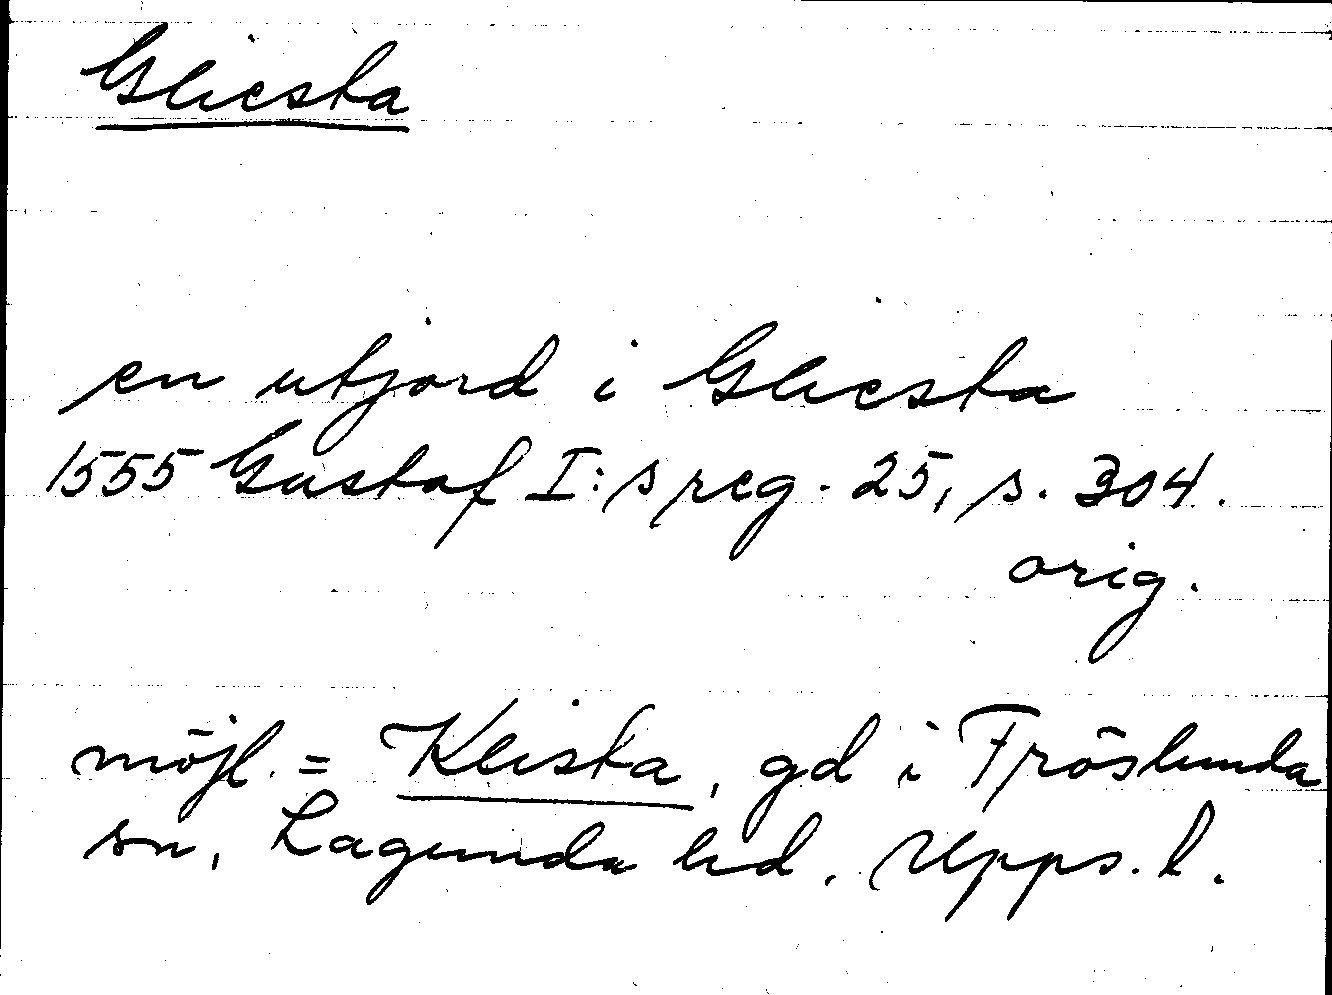 Gliesta
en utjord i Gliesta
1555 Gustaf I:s reg. 25, s. 304.
orig.
möjl. = Kleista, gd i Fröslunda
sn, Lagunda hd. Upps. l.